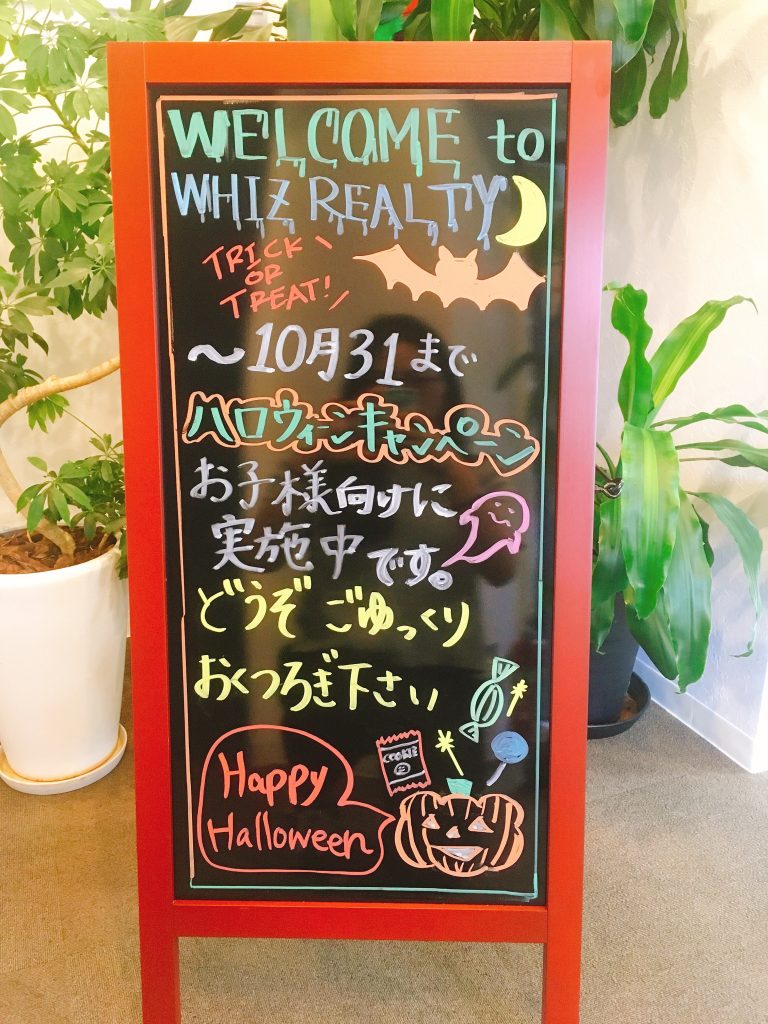 WELCOME to
WHIZ REALTY
TRICK
OR
TREAT!
～10月31まで
ハロウィーンキャンペーン
お子様向けに
実施中です。
どうぞごゆっくり
おくつろぎ下さい
COOKIE
Happy
Halloween